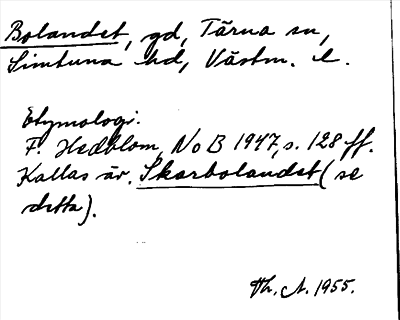 Bolandet, gd, Tärna sn,
Simtuna hd, Västm. l.
Etymologi:
F. Hedblom, NoB 1947, s. 128 ff.
Kallas äv. Skarbolandet (se
detta).
Th. A. 1955.